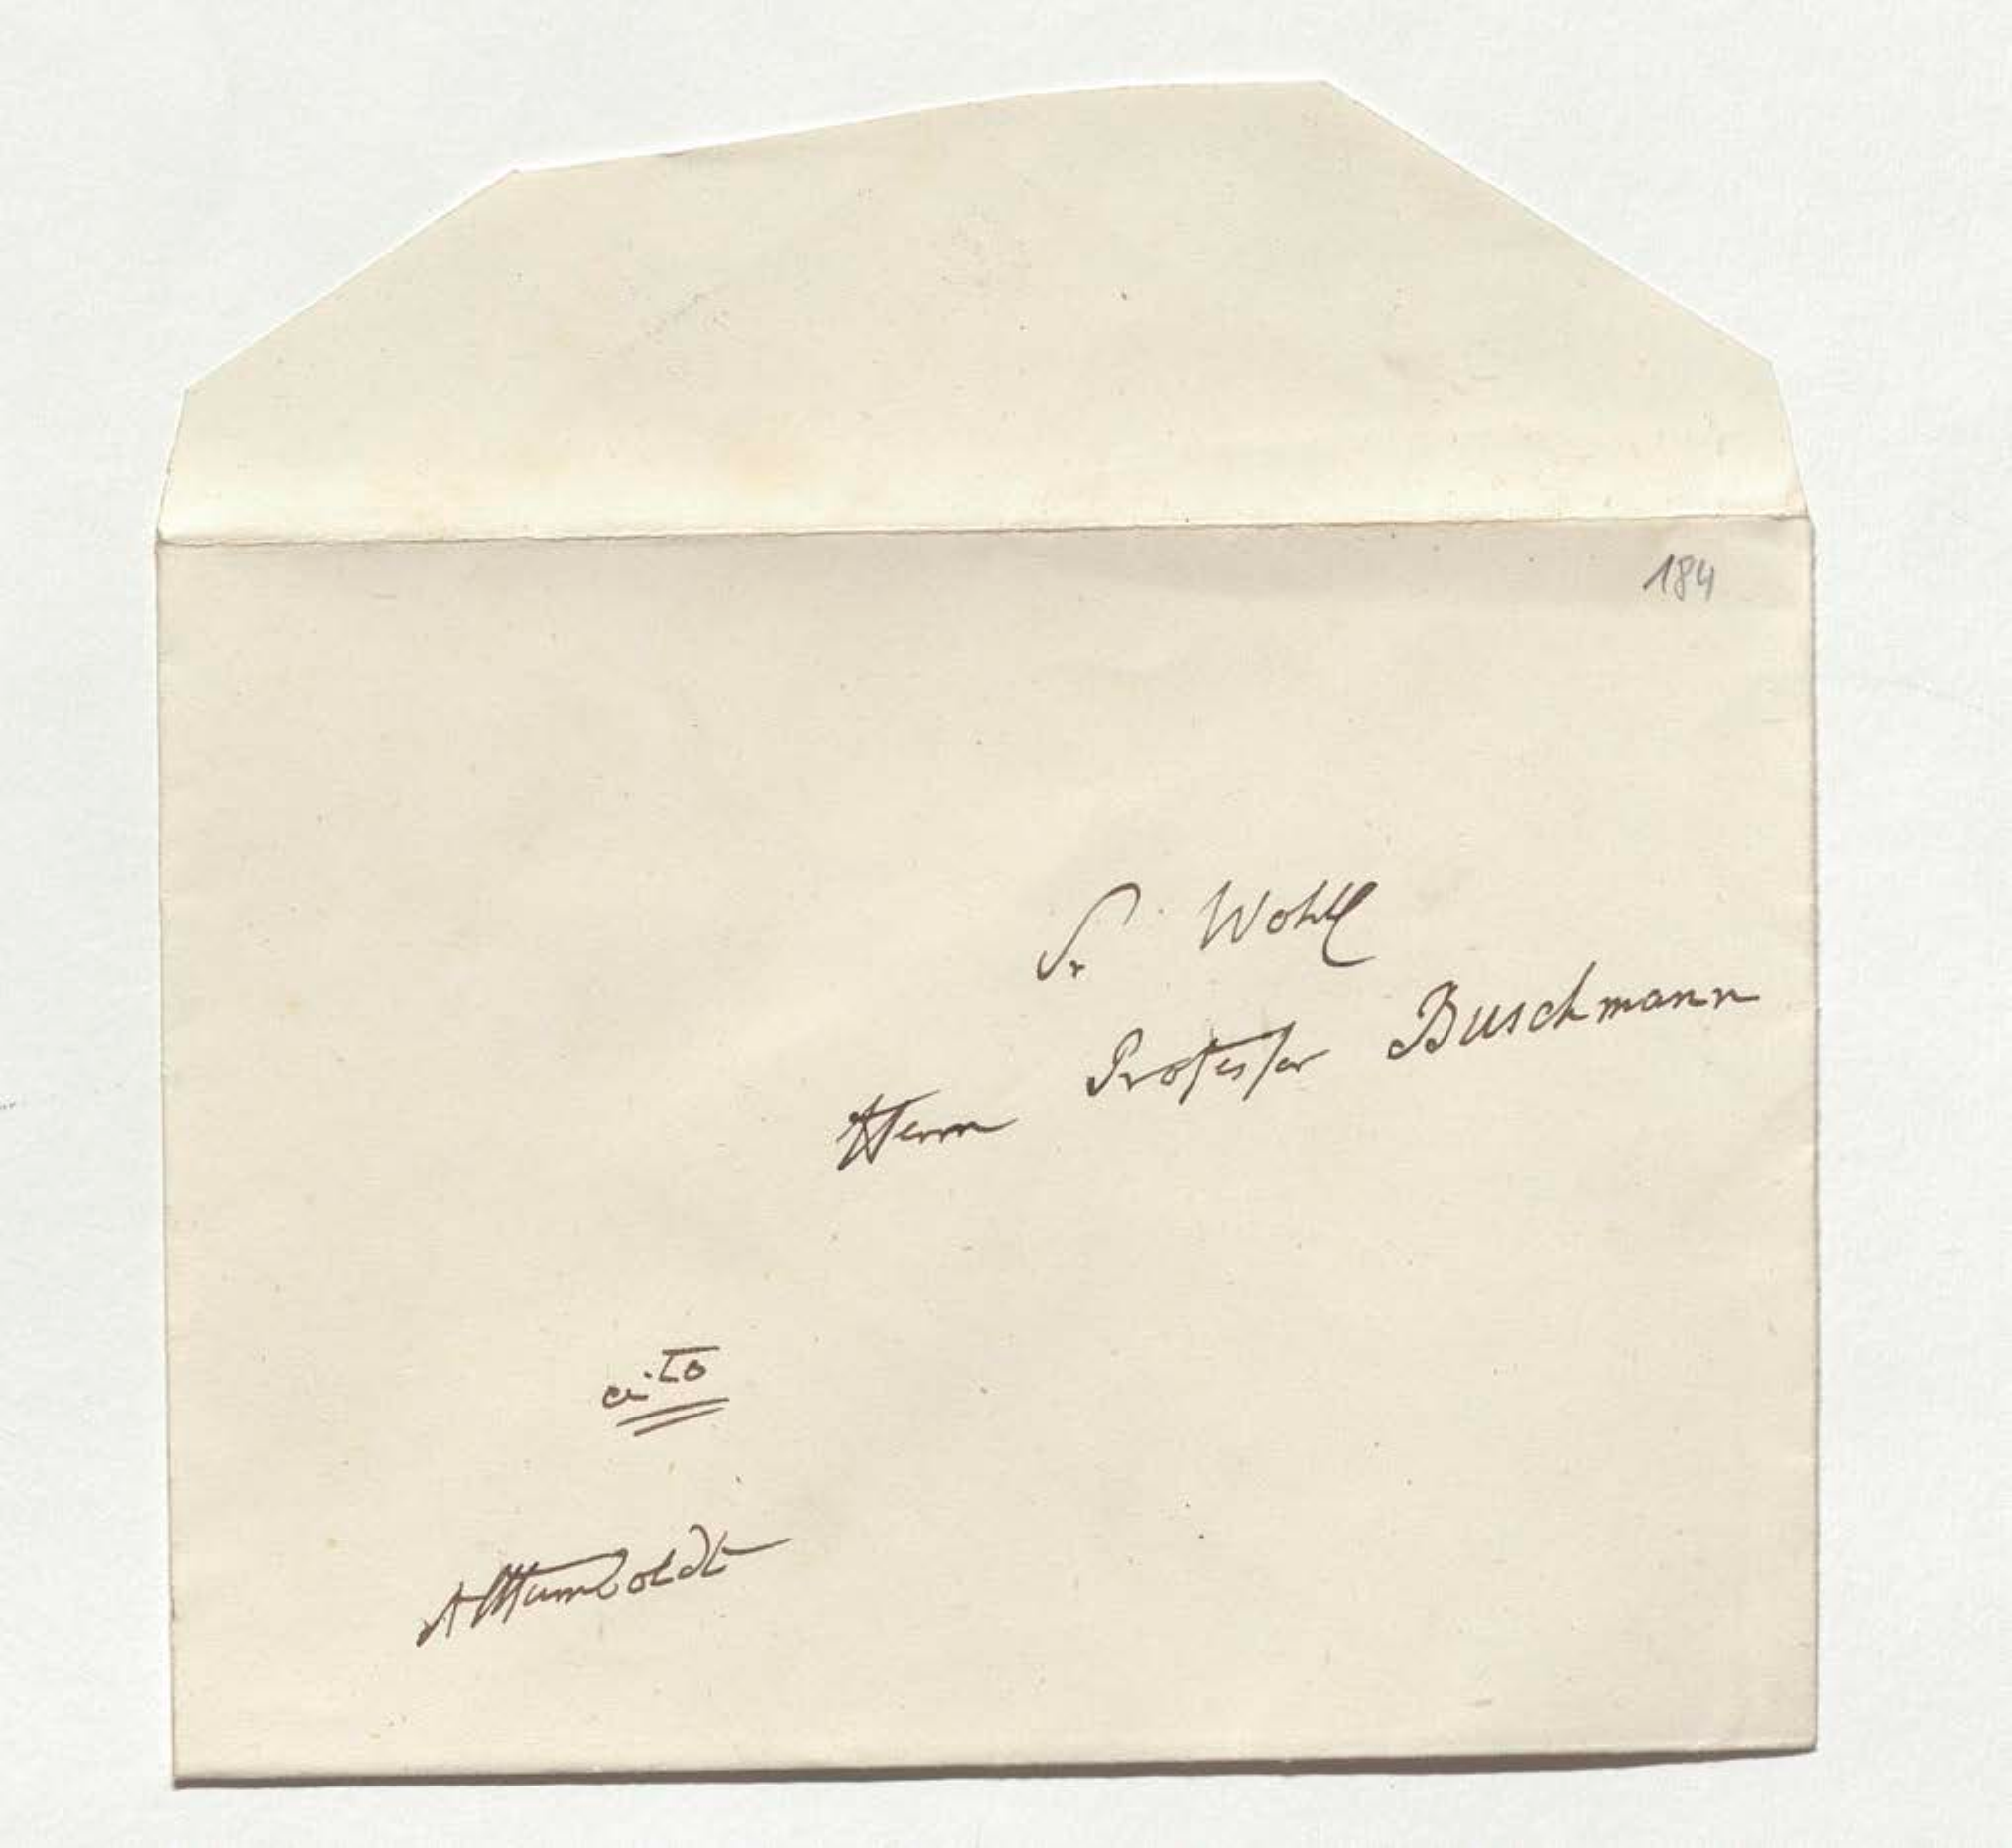 184
Sr. Wohll
Herrn Professor Buschmann
cito
AvHumboldt